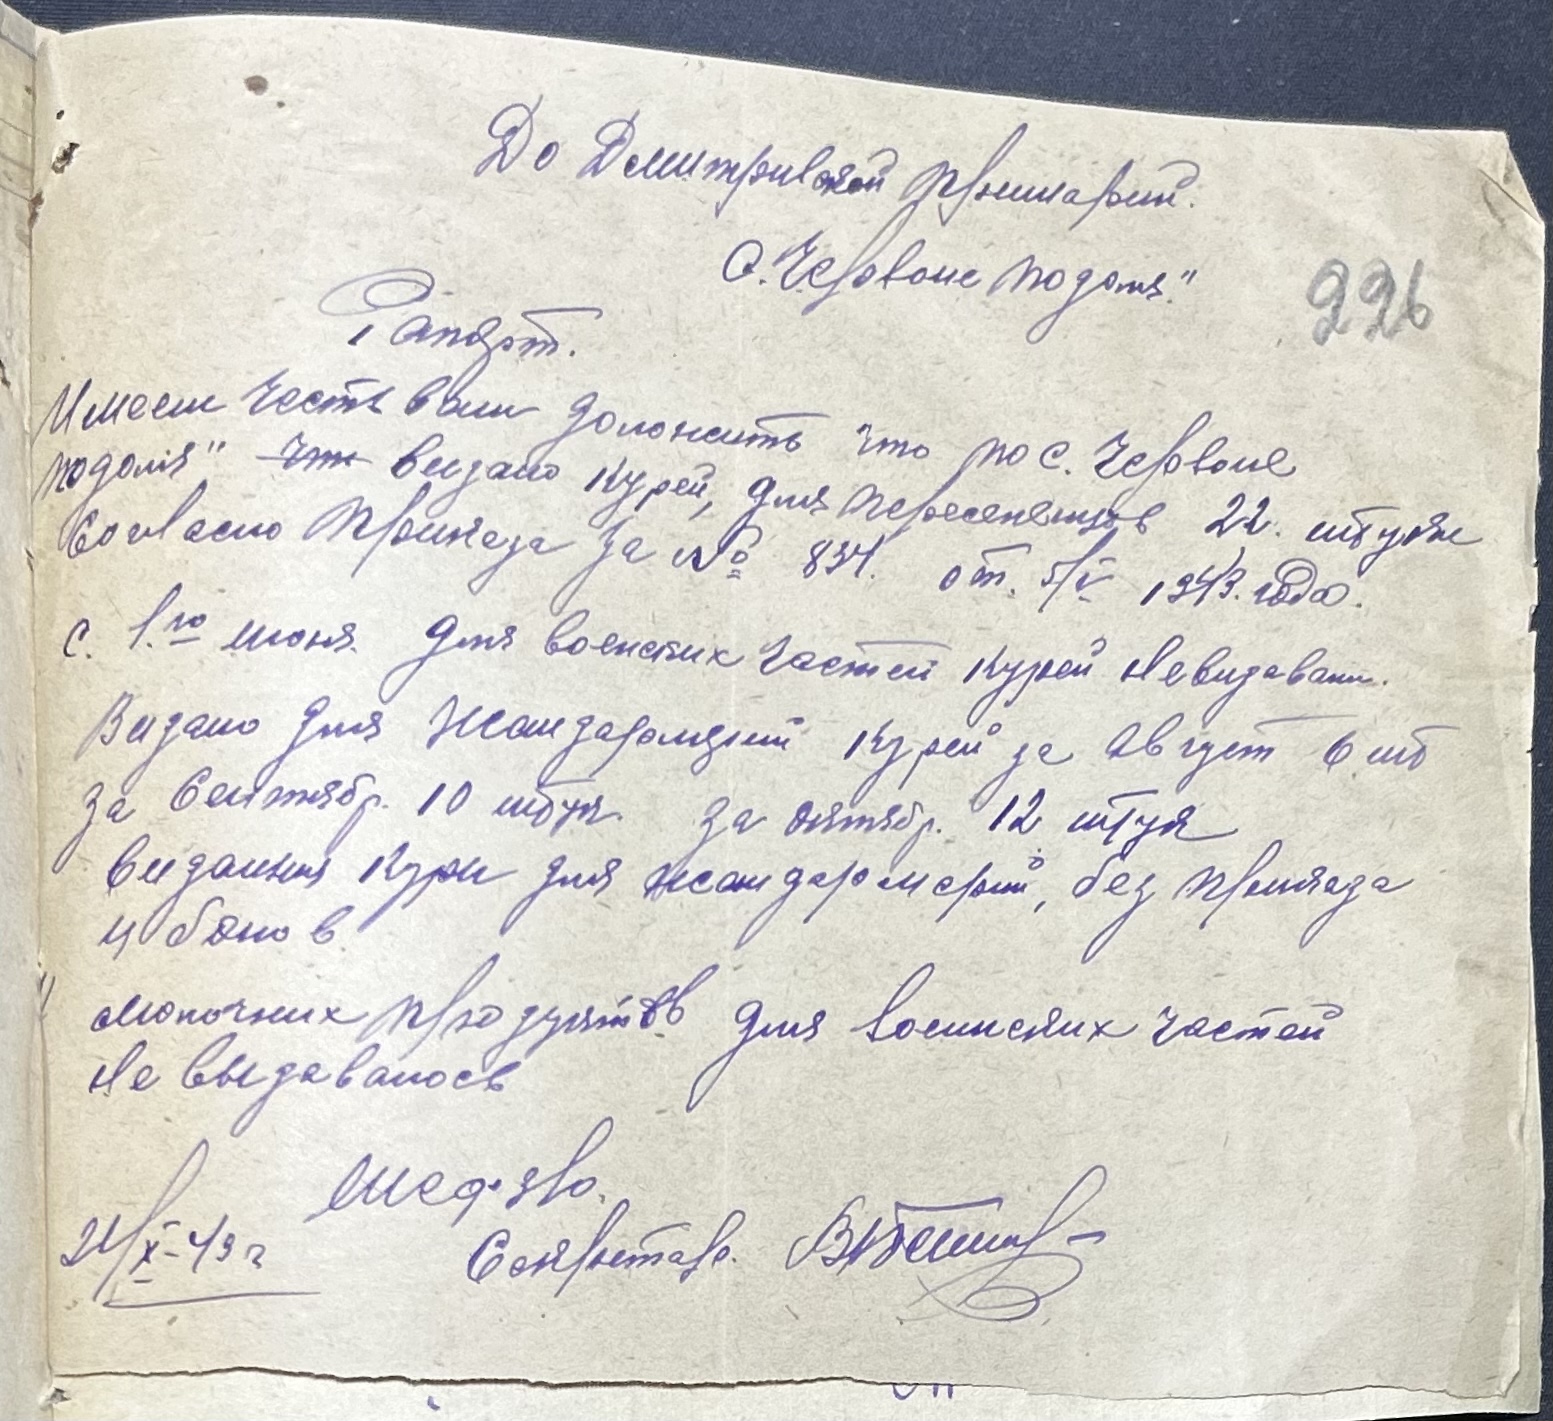 До Дмитривской примарии.
С. Червоне подоля"
226
Рапорт.
Имеем честь вам доложить что по с. Червоне
подоля" что видано курей, для переселенцов 22. штуки
Согласно приказа за № 834. от. 5/V 1943. года.
с. 1.го июня. для военских частей курей невидавали.
Видано для жандармерии курей за август 6 шт
за Сентябр. 10 штук. за октябр. 12 штук
видания кури для жандармерии, без приказа
и бонов
молочних продуктов для воинских частей
не выдавалось
Шеф. з/во.
21/X-43 г Секретарь.